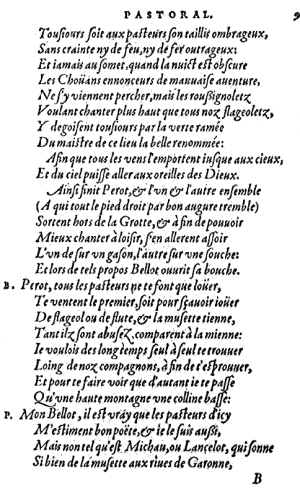 PASTORAL. 9
Tousiours soit aux pasteurs son taillis ombrageux,
Sans crainte ny de feu, ny de fer outrageux:
Et iamais au somet, quand la nuict est obscure
Les Choüans ennonceurs de mauuaise auenture,
Ne s'y viennent percher, mais les roußignoletz
Voulant chanter plus haut que tous noz flageoletz,
Y degoisent tousiours par la verte ramée
Du maistre de ce lieu la belle renommée:
Afin que tous les vens l'emportent iusque aux cieux,
Et du ciel puisse aller aux oreilles des Dieux.
Ainsi finit Perot, & l'vn & l'autre ensemble
(A qui tout le pied droit par bon augure tremble)
Sortent hors de la Grotte, & à fin de pouuoir
Mieux chanter à loisir, s'en allerent assoir
L'vn de sur vn gason, l'autre sur vne souche:
Et lors de tels propos Bellot ouurit sa bouche.
B. Perot, tous les pasteurs ne te font que loüer,
Te ventent le premier, soit pour sçauoir ioüer
De flageol ou de flute, & la musette tienne,
Tant ilz sont abusez, comparent à la mienne:
Ie voulois des long temps seul à seul te trouuer
Loing de noz compagnons, à fin de t'esprouuer,
Et pour te faire voir que d'autant ie te passe
Qu'vne haute montagne vne colline basse:
P. Mon Bellot, il est vray que les pasteurs d'icy
M'estiment bon poëte, & ie le suis außi,
Mais non tel qu'est Michau, ou Lancelot, qui sonne
Si bien de la musette aux riues de Garonne,
B